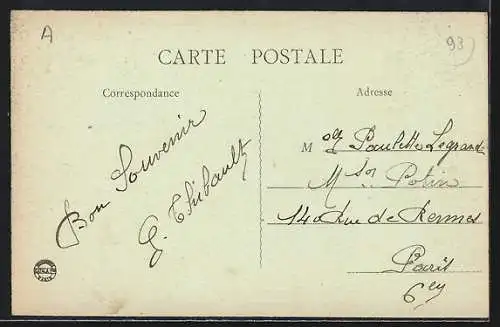 A
93
CARTE POSTALE
Correspondance
Adresse
Bon Souvenir
G. Thibault
M elle Paulette Legrand
M son Potin
140 Rue de Rennes
Paris
6e